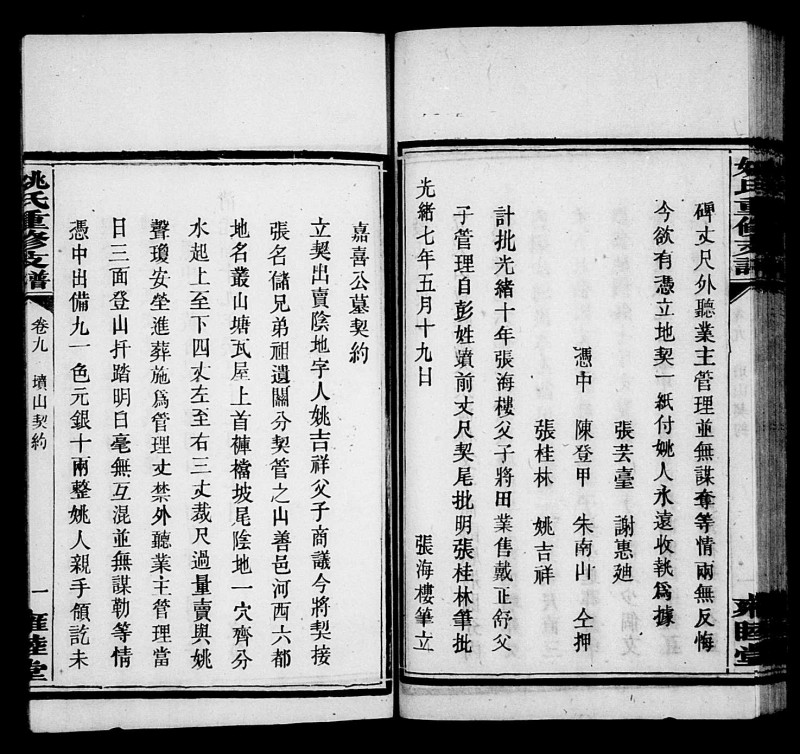 碑丈尺外聽業主管理並無謀奪等情兩無反悔
今欲有憑立地契一紙付姚人永遠收執爲據
張芸臺 謝惠廸
憑中 陳登甲 朱南山 仝押
張桂林 姚吉祥
計批光緒十年張海樓父子將田業售戴正舒父
子管理自彭姓墳前丈尺契尾批明張桂林筆批
光緒七年五月十九日 張海樓筆立
嘉喜公墓契約
立契出賣陰地字人姚吉祥父子商議今將契接
張名儲兄弟祖遺鬮分契管之山善邑河西六都
地名叢山塘瓦屋上首褲襠坡尾陰地一穴齊分
水起上至下四丈左至右三丈裁尺過量賣與姚
聲瓊安塋進葬施爲管理丈禁外聽業主管理當
日三面登山扦踏明白毫無互混並無謀勒等情
憑中出備九一色元銀十兩整姚人親手領訖未
姚氏重修支譜 卷九 墳山契約 一 雍睦堂